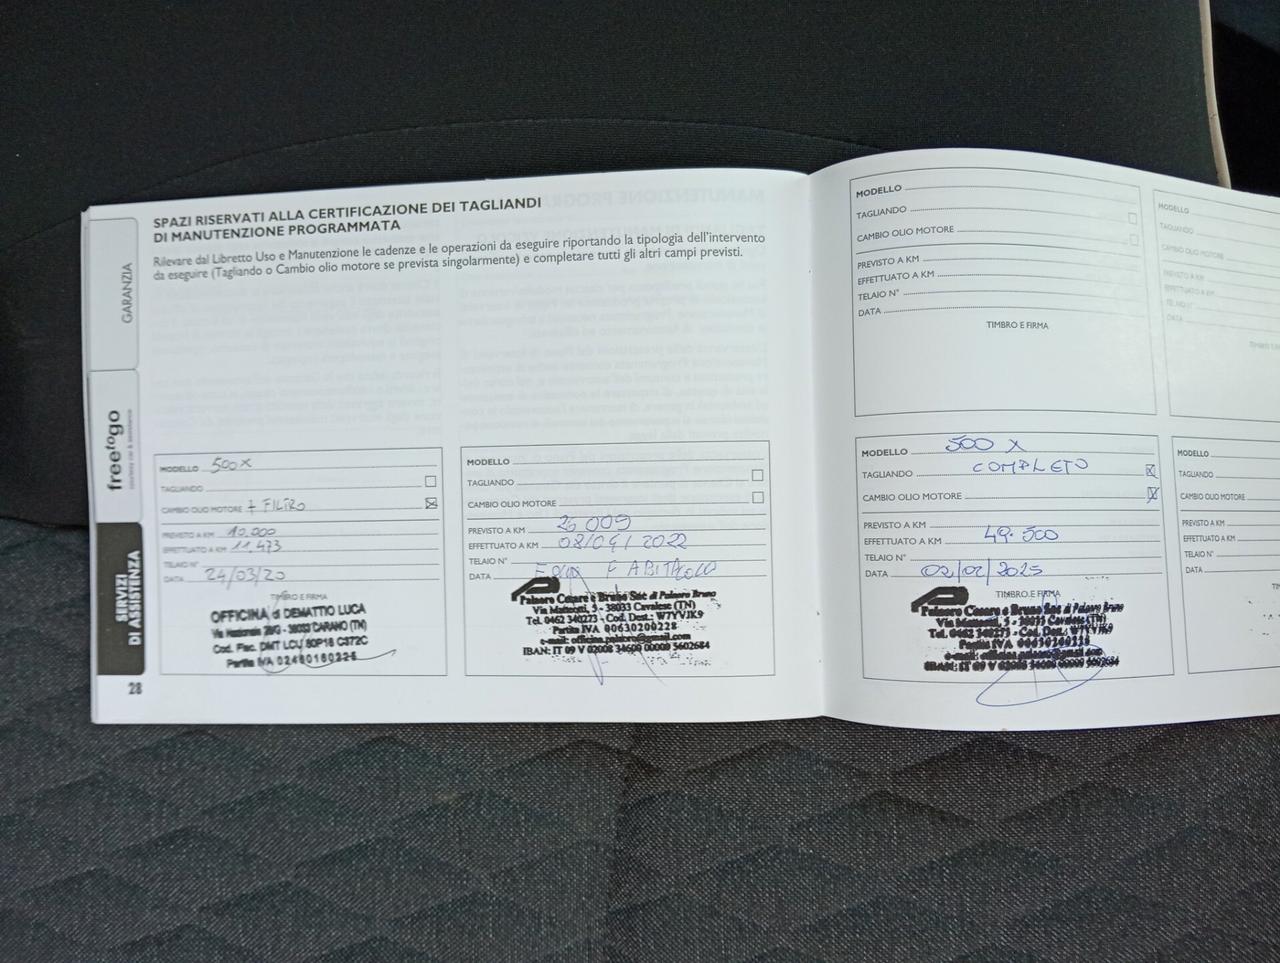 SPAZI RISERVATI ALLA CERTIFICAZIONE DEI TAGLIANDI
DI MANUTENZIONE PROGRAMMATA
Rilevare dal Libretto Uso e Manutenzione le cadenze e le operazioni da eseguire riportando la tipologia dell'intervento
da eseguire (Tagliando o Cambio olio motore se prevista singolarmente) e completare tutti gli altri campi previsti.
GARANZIA
freetogo
SERVIZI
DI ASSISTENZA
28
MODELLO 500X
TAGLIANDO
CAMBIO OLIO MOTORE + FILTRO
PREVISTO A KM 10.000
EFFETTUATO A KM 11.473
TELAIO N°
DATA 24/03/20
TIMBRO E FIRMA
OFFICINA di DEMATTIO LUCA
38033 CARANO (TN)
Partita IVA
MODELLO
TAGLIANDO
CAMBIO OLIO MOTORE
PREVISTO A KM 26009
EFFETTUATO A KM 08/04/2022
TELAIO N°
DATA
Palaoro Cesare e Bruno Snc di Palaoro Bruno
Via Matteotti, 5 - 38033 Cavalese (TN)
Tel. 0462 340273 - Cod. Dest.: W7YVJK9
Partita IVA 00630200228
e-mail: officina.palaoro@gmail.com
IBAN: IT 09 V 02008 34600 00000 5602684
MODELLO
TAGLIANDO
CAMBIO OLIO MOTORE
PREVISTO A KM
EFFETTUATO A KM
TELAIO N°
DATA
TIMBRO E FIRMA
MODELLO
TAGLIANDO
CAMBIO OLIO MOTORE
PREVISTO A KM
EFFETTUATO A KM
TELAIO N°
DATA
MODELLO 500 X
TAGLIANDO COMPLETO
CAMBIO OLIO MOTORE
PREVISTO A KM
EFFETTUATO A KM 49.500
TELAIO N°
DATA 02/02/2025
TIMBRO E FIRMA
Palaoro Cesare e Bruno Snc di Palaoro Bruno
Via Matteotti, 5 - 38033 Cavalese (TN)
Tel. 0462 340273 - Cod. Dest.: W7YVJK9
Partita IVA 00630200228
e-mail: officina.palaoro@gmail.com
IBAN: IT 09 V 02008 34600 00000 5602684
MODELLO
TAGLIANDO
CAMBIO OLIO MOTORE
PREVISTO A KM
EFFETTUATO A KM
TELAIO N°
DATA